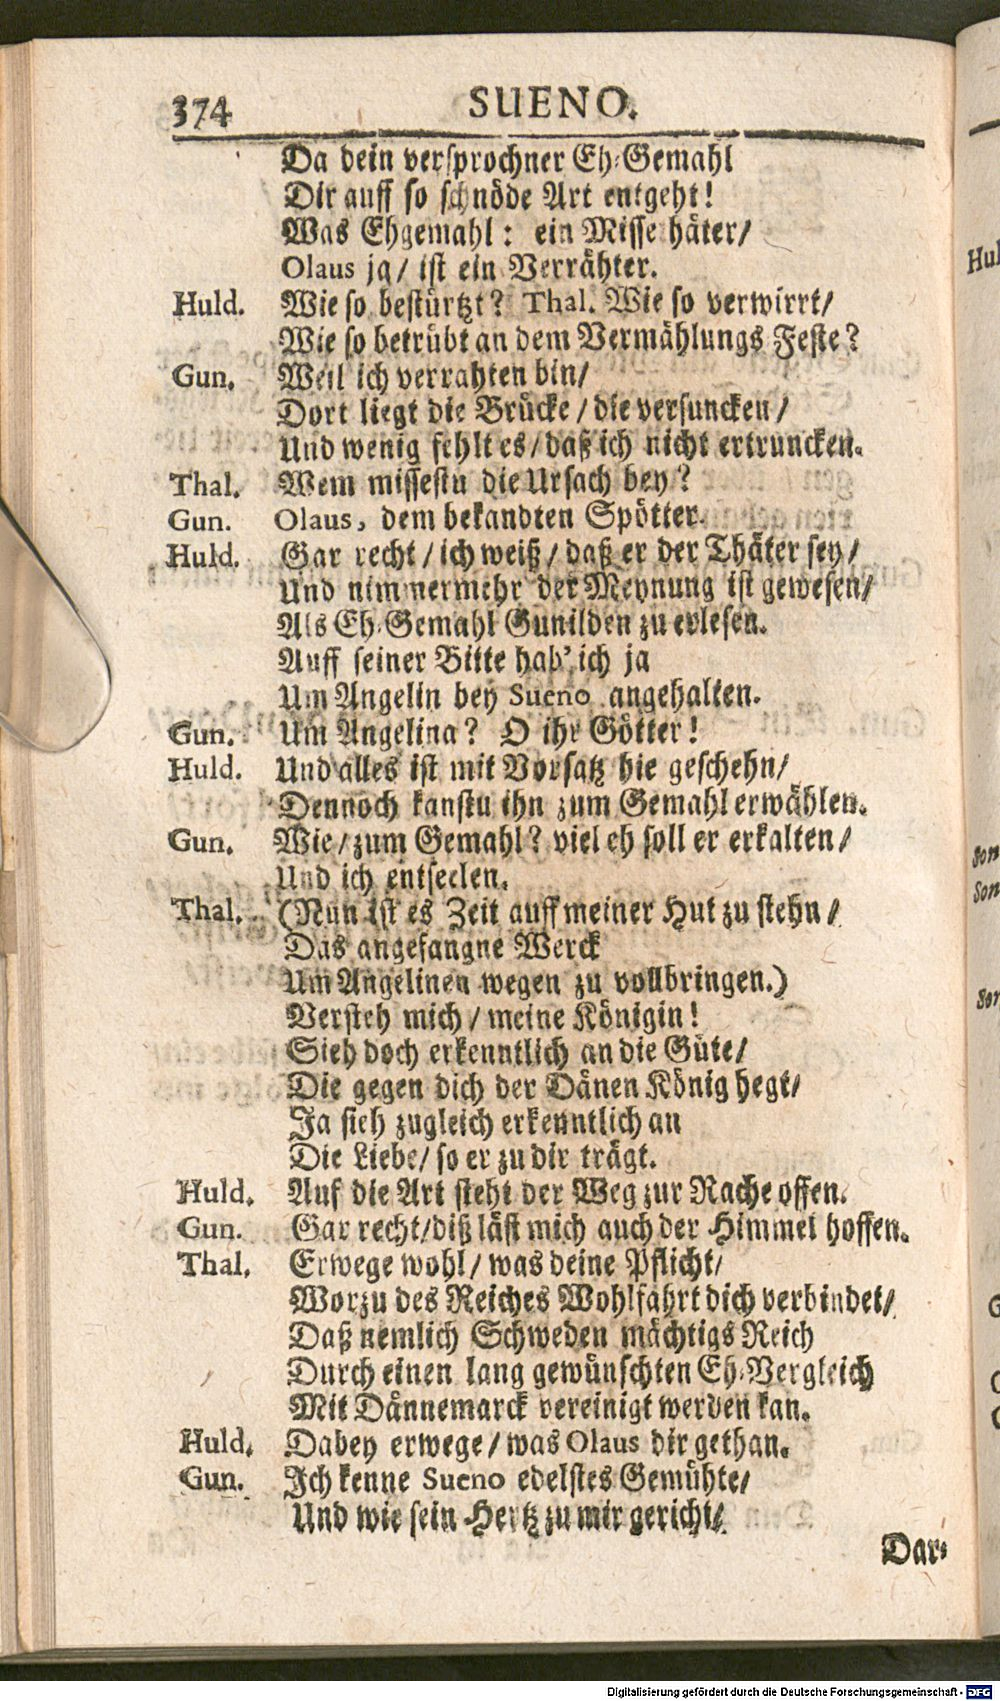 374 SUENO.
Da dein versprochner Eh-Gemahl
Dir auff so schnöde Art entgeht!
Was Ehgemahl: ein Missethäter/
Olaus ja/ ist ein Verrähter.
Huld. Wie so bestürtzt? Thal. Wie so verwirrt/
Wie so betrübt an dem Vermählungs Feste?
Gun. Weil ich verrahten bin/
Dort liegt die Brücke/ die versuncken/
Und wenig fehlt es/ daß ich nicht ertruncken.
Thal. Wem missestu die Ursach bey?
Gun. Olaus, dem bekandten Spötter.
Huld. Gar recht/ ich weiß/ daß er der Thäter sey/
Und nimmermehr der Meynung ist gewesen/
Als Eh-Gemahl Gunilden zu erlesen.
Auff seiner Bitte hab' ich ja
Um Angelin bey Sueno angehalten.
Gun. Um Angelina? O ihr Götter!
Huld. Und alles ist mit Vorsatz hie geschehn/
Dennoch kanstu ihn zum Gemahl erwählen.
Gun. Wie/ zum Gemahl? viel eh soll er erkalten/
Und ich entseelen.
Thal. (Nun ist es Zeit auff meiner Hut zu stehn/
Das angefangne Werck
Um Angelinen wegen zu vollbringen.)
Versteh mich/ meine Königin!
Sieh doch erkenntlich an die Güte/
Die gegen dich der Dänen König hegt/
Ja sieh zugleich erkenntlich an
Die Liebe/ so er zu dir trägt.
Huld. Auf die Art steht der Weg zur Rache offen.
Gun. Gar recht/ diß läst mich auch der Himmel hoffen.
Thal. Erwege wohl/ was deine Pflicht/
Worzu des Reiches Wohlfahrt dich verbindet/
Daß nemlich Schweden mächtigs Reich
Durch einen lang gewünschten Eh-Vergleich
Mit Dännemarck vereinigt werden kan.
Huld. Dabey erwege/ was Olaus dir gethan.
Gun. Ich kenne Sueno edelstes Gemühte/
Und wie sein Hertz zu mir gericht/
Dar-
Digitalisierung gefördert durch die Deutsche Forschungsgemeinschaft - DFG